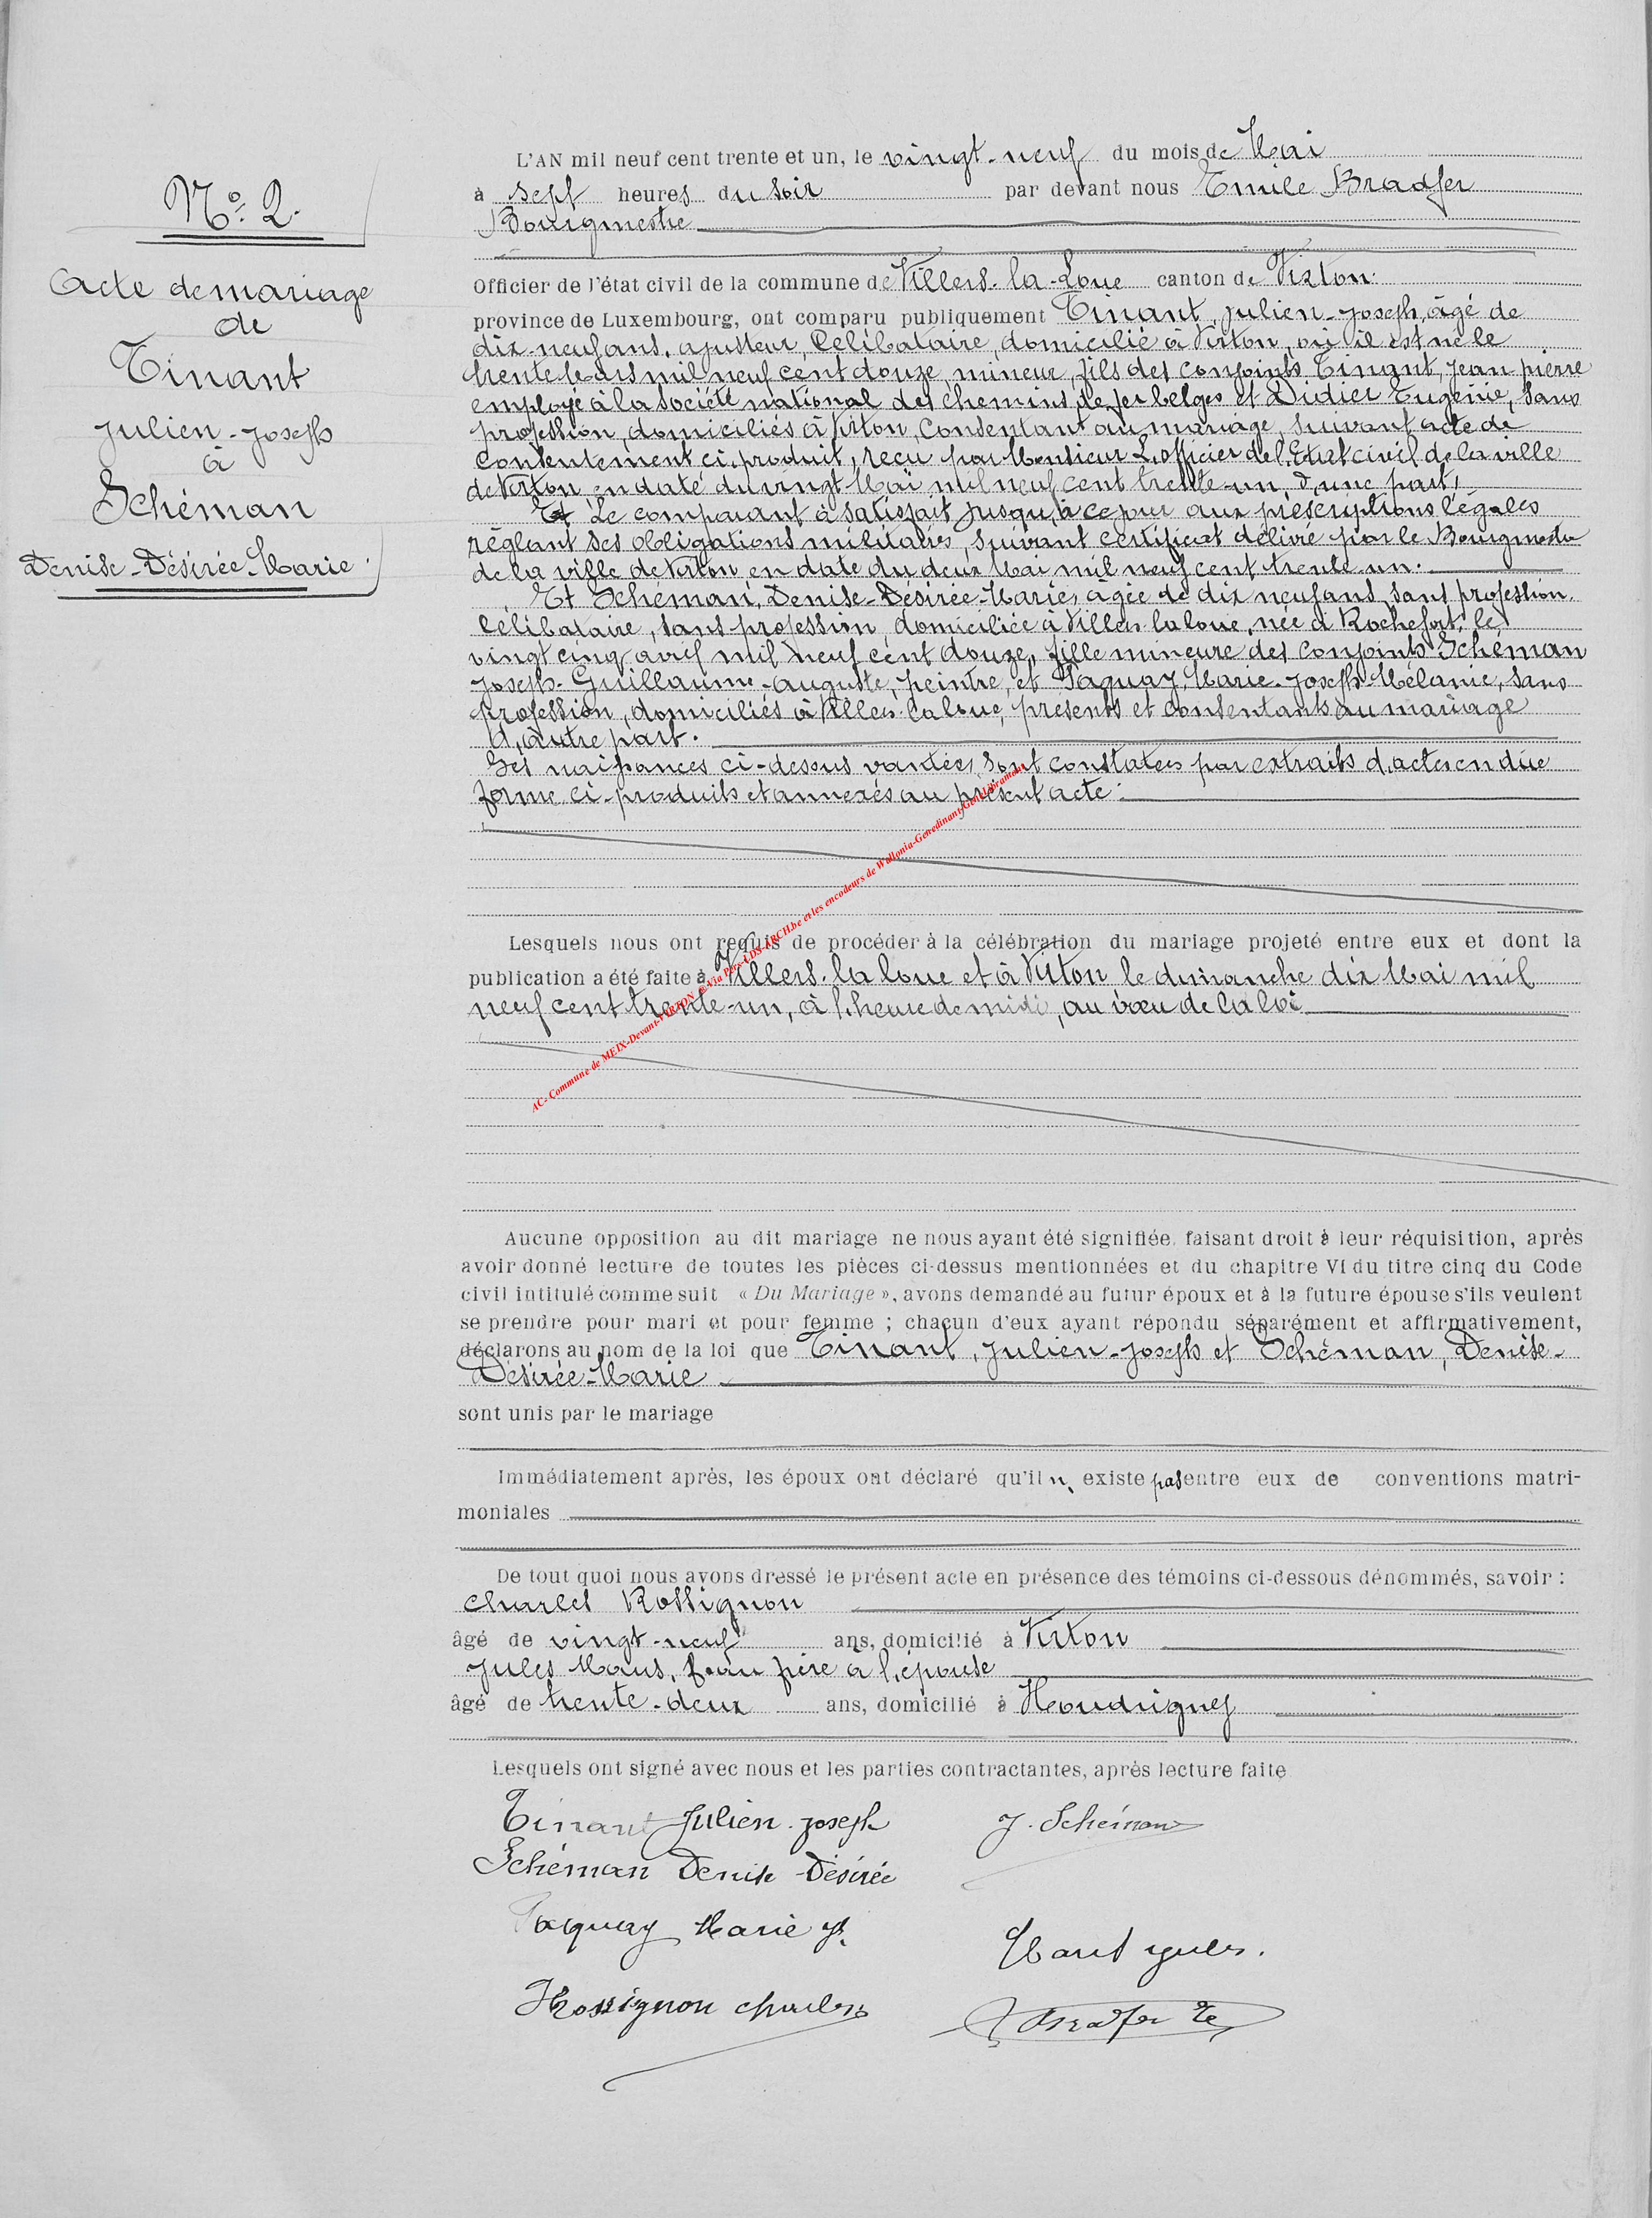 N° 2.
Acte de mariage
de
Tinant
Julien-Joseph
à
Schéman
Denise-Désirée-Marie
L'AN mil neuf cent trente et un, le vingt-neuf du mois de Mai
à sept heures du soir par devant nous Emile Bradfer
Bourgmestre
Officier de l'état civil de la commune de Villers-la-Loue canton de Virton
province de Luxembourg, ont comparu publiquement Tinant, Julien-Joseph, âgé de
dix-neuf ans, ajusteur, Célibataire, domicilié à Virton, où il est né le
trente Mars mil neuf cent douze, mineur, fils des conjoints Tinant, Jean pierre
employé à la société national des chemins de fer belges et Didier Eugénie, sans
profession, domiciliés à Virton, Consentant au mariage, suivant acte de
Consentement ci, produit, reçu par Monsieur L,officier de l,Etat civil de la ville
de Virton en date du vingt Mai mil neuf cent trente-un, d,une part,
Et Le comparant à satisfait jusqu,à ce jour aux préscriptions légales
réglant ses obligations militaires, suivant certificat délivré par le Bourgmestre
de la ville de Virton en date du deux Mai mil neuf cent trente-un.
Et Schéman, Denise-Désirée-Marie, âgée de dix neuf ans, sans profession,
Célibataire, sans profession, domiciliée à Villers-la loue, née à Rochefort, le
vingt cinq avril mil neuf cent douze, fille mineure des conjoints Schéman
Joseph-Guillaume-auguste, peintre, et Paquay, Marie-Joseph-Mélanie, sans
profession, domiciliés à Villers-la loue, présents et consentants au mariage
d,autre part.
Les naissances ci-dessus vantées, sont constatées par extraits d,actes en due
forme ci-produits et annexés au présent acte.
Lesquels nous ont requis de procéder à la célébration du mariage projeté entre eux et dont la
publication a été faite à Villers-la loue et à Virton le dimanche dix Mai mil
neuf cent trente-un, à l,heure de midi, au vœu de la loi
AC- Commune de MEIX-Devant-VIRTON
Aucune opposition au dit mariage ne nous ayant été signifiée, faisant droit à leur réquisition, après
avoir donné lecture de toutes les pièces ci-dessus mentionnées et du chapitre VI du titre cinq du Code
civil intitulé comme suit « Du Mariage », avons demandé au futur époux et à la future épouse s'ils veulent
se prendre pour mari et pour femme ; chacun d'eux ayant répondu séparément et affirmativement,
déclarons au nom de la loi que Tinant, Julien-Joseph et Schéman, Denise-
Désirée-Marie
sont unis par le mariage
Immédiatement après, les époux ont déclaré qu'il n, existe pas entre eux de conventions matri-
moniales
De tout quoi nous avons dressé le présent acte en présence des témoins ci-dessous dénommés, savoir :
Charles Rossignon
âgé de vingt-neuf ans, domicilié à Virton
Jules Maus, beau frère à l,épouse
âgé de trente-deux ans, domicilié à Houdrigny
Lesquels ont signé avec nous et les parties contractantes, après lecture faite
Tinant Julien-Joseph
J. Schéman
Schéman Denise-Désirée
Paquay Marie J.
Maus Jules.
Rossignon Charles
Bradfer E